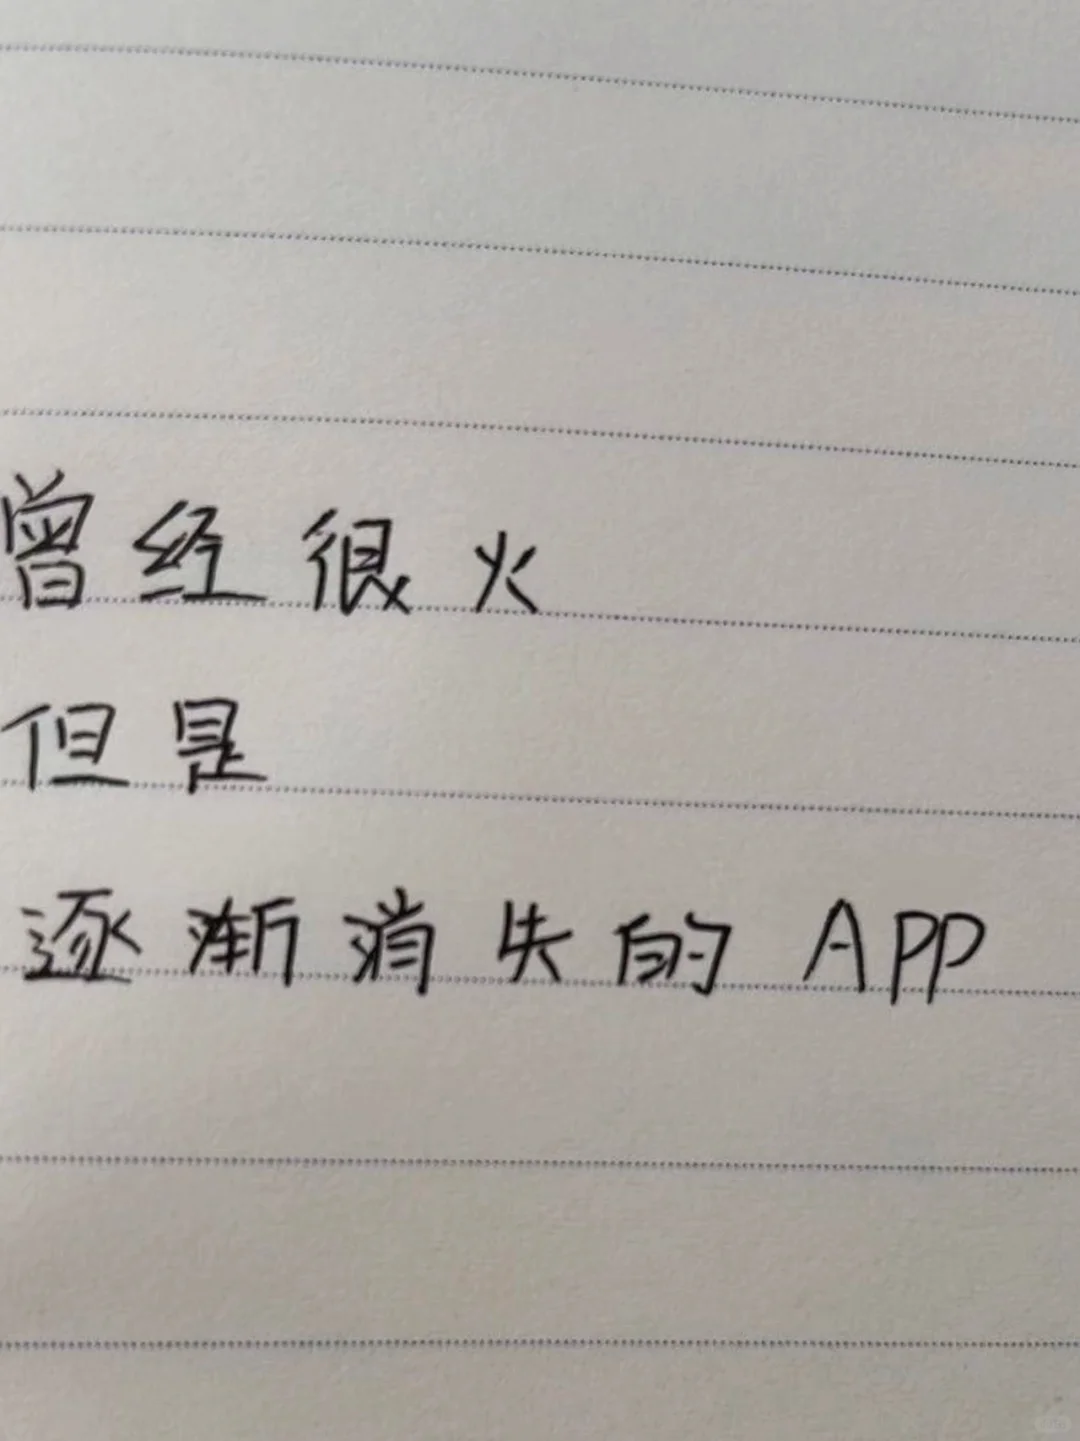 曾经很火
但是
逐渐消失的APP